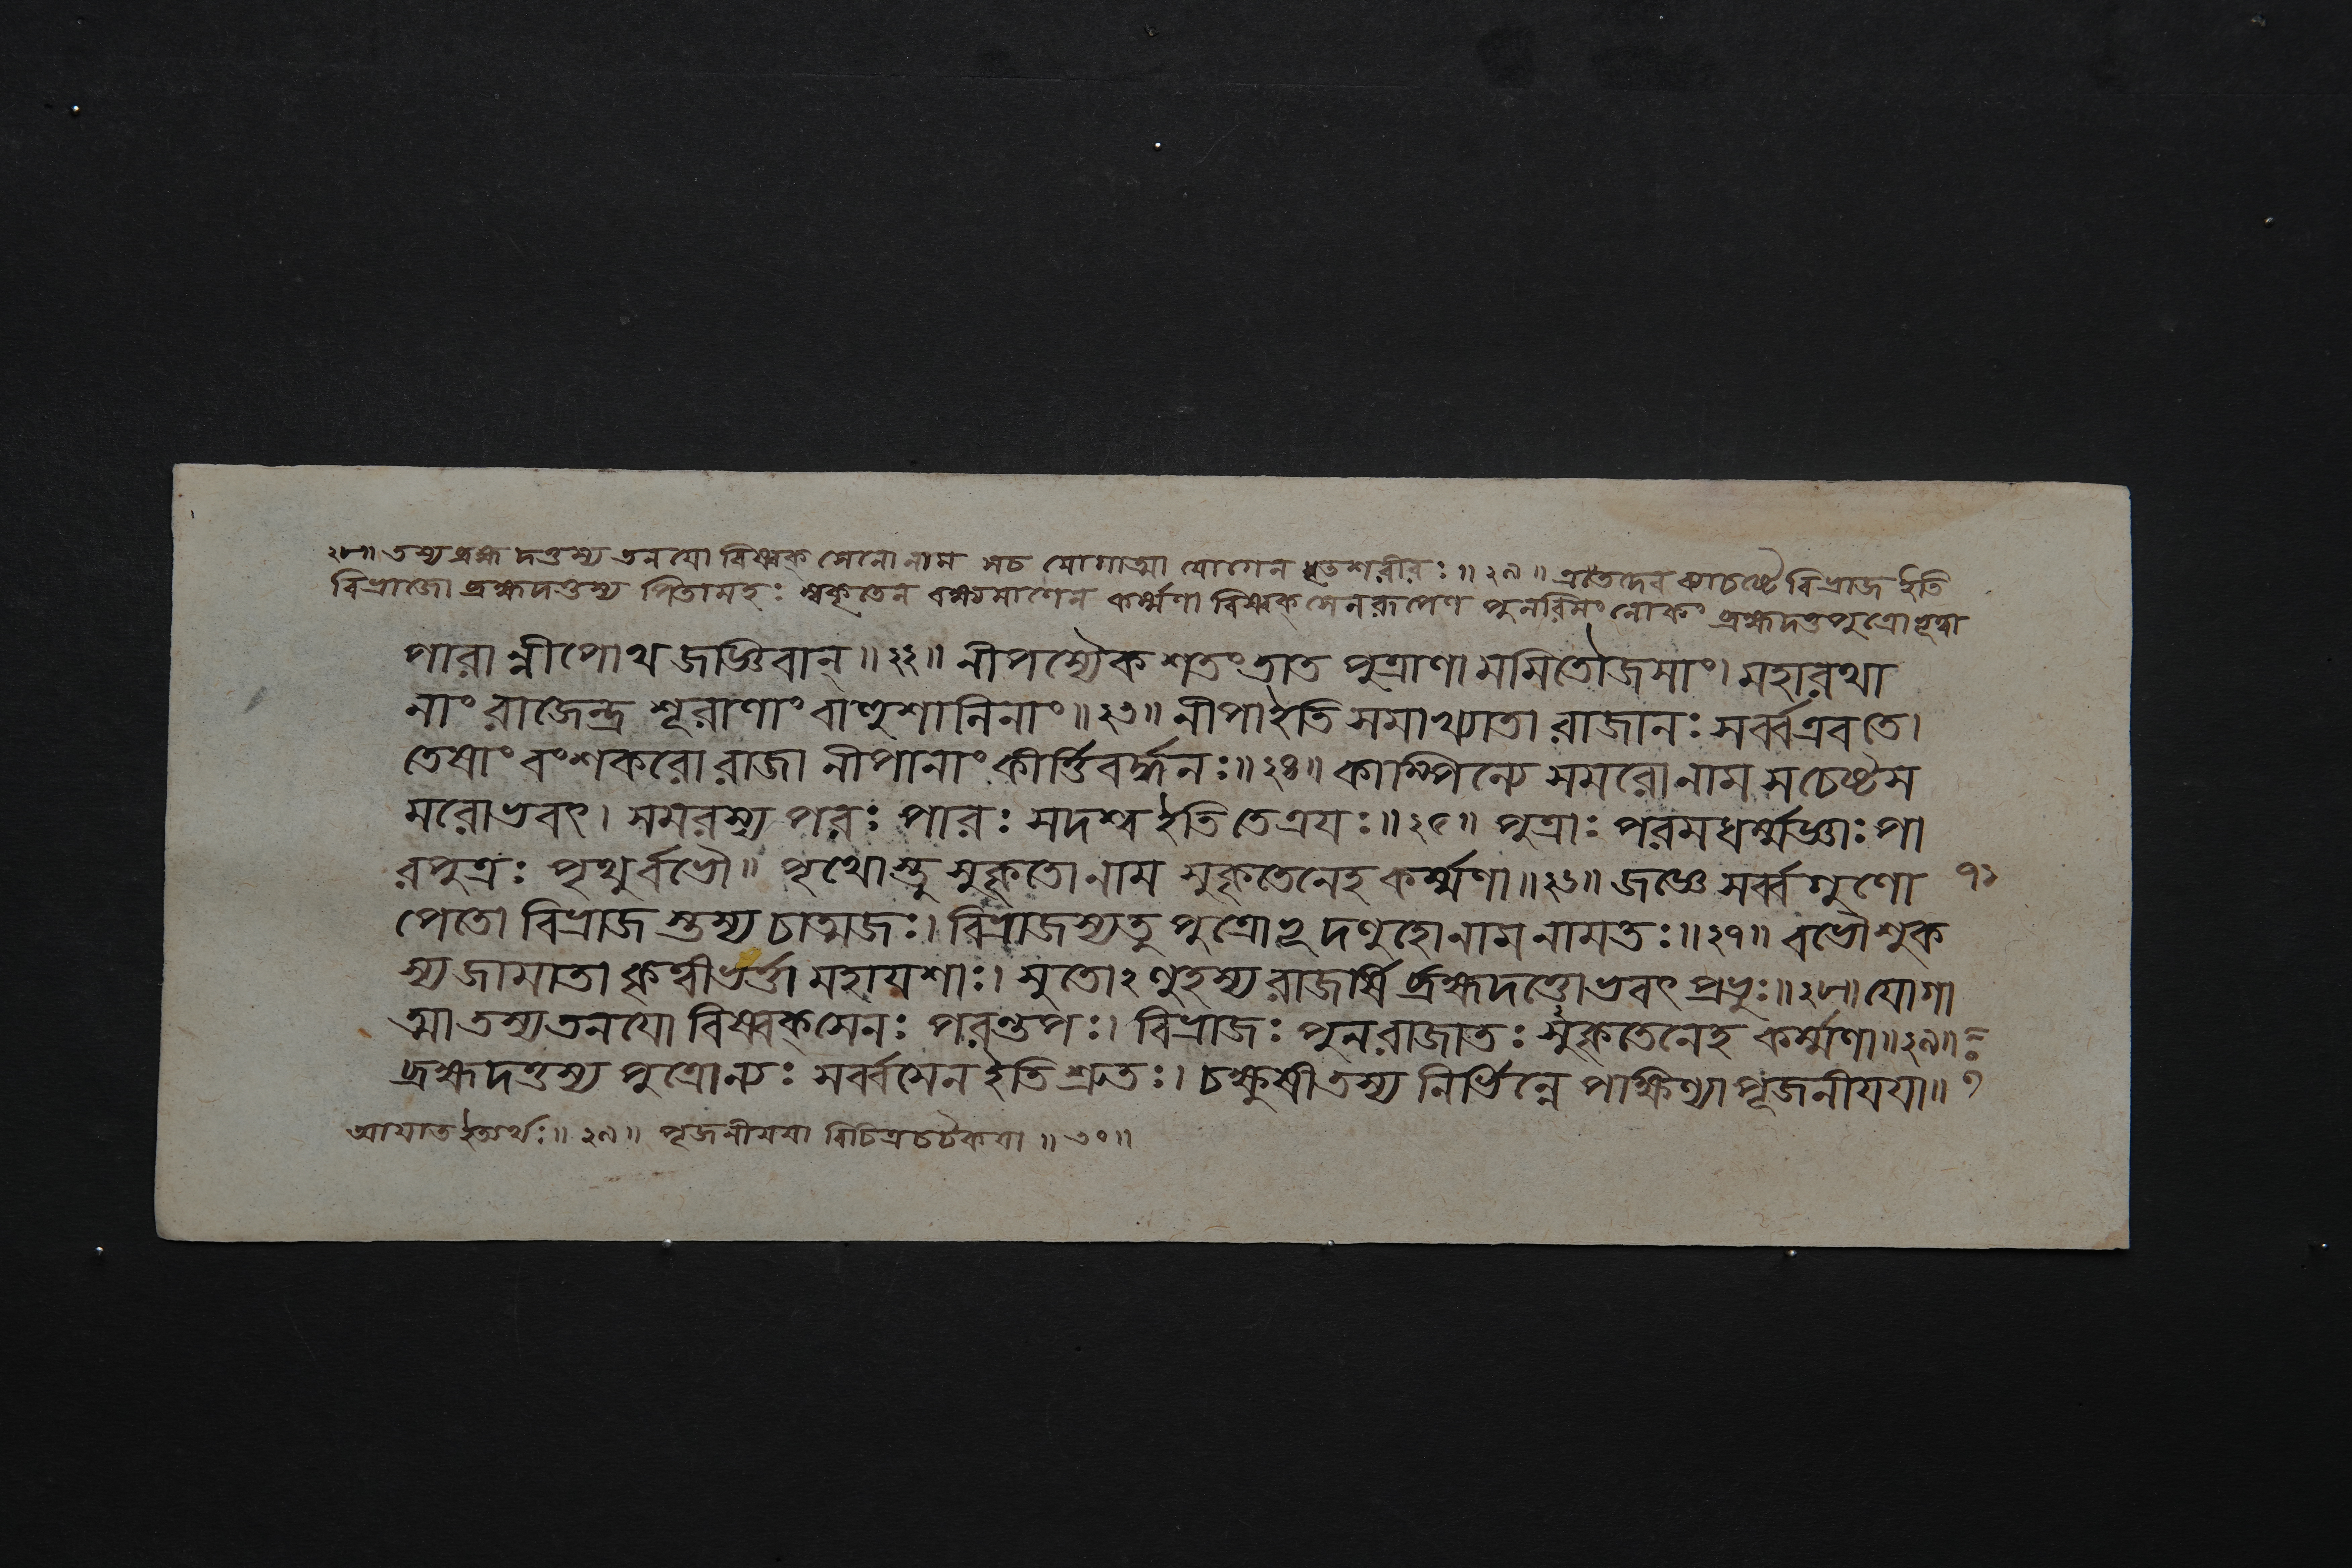 ২৮॥ তস্য ব্রহ্মদত্তস্য তনযো বিষ্বক্সেনো নাম সচ যোগাত্মা যোগেন ধৃতশরীরঃ॥২৯॥ এতদেব ব্যাচষ্টে বিভ্রাজ ইতি
বিভ্রাজো ব্রহ্মদত্তস্য পিতামহঃ স্বকৃতেন বক্ষ্যমাণেন কর্ম্মণা বিষ্বক্সেনরূপেণ পুনরিমং লোকং ব্রহ্মদত্তপুত্রোভূত্বা
পারান্নীপোথ জজ্ঞিবান্॥২২॥ নীপস্যৈকশতং তাত পুত্রাণামমিতৌজসাং। মহারথা
নাং রাজেন্দ্র শূরাণাং বাহুশালিনাং॥২৩॥ নীপা ইতি সমাখ্যাতা রাজানঃ সর্ব্ব এব তে।
তেষাং বংশকরো রাজা নীপানাং কীর্ত্তিবর্দ্ধনঃ॥২৪॥ কাম্পিল্যে সমরো নাম সচেষ্টস
মরোভবৎ। সমরস্য পরঃ পারঃ সদশ্ব ইতি তে ত্রযঃ॥২৫॥ পুত্রাঃ পরমধর্ম্মজ্ঞাঃ পা
রপুত্রঃ পৃথুর্বভৌ॥ পৃথোস্তু সুকৃতো নাম সুকৃতেনেহ কর্ম্মণা॥২৬॥ জজ্ঞে সর্ব্বগুণো ৭১
পেতো বিভ্রাজস্তস্য চাত্মজঃ। বিভ্রাজস্য তু পুত্রোভূদণুহো নাম নামতঃ॥২৭॥ বভৌ শুক
স্য জামাতা কৃত্বীভর্ত্তা মহাযশাঃ। সুতোঽণুহস্য রাজর্ষি র্ব্রহ্মদত্তোভবৎ প্রভুঃ॥২৮॥ যোগা
ত্মা তস্য তনযো বিষ্বক্সেনঃ পরন্তপঃ। বিভ্রাজঃ পুনরাজাতঃ সুকৃতেনেহ কর্ম্মণা॥২৯॥
ব্রহ্মদত্তস্য পুত্রোন্যঃ সর্ব্বসেন ইতি শ্রুতঃ। চক্ষুষী তস্য নির্ভিন্নে পক্ষিণ্যা পূজনীযযা॥
আযাত ইত্যর্থঃ॥২৯॥ পূজনীযযা বিচিত্রচটকযা॥৩০॥